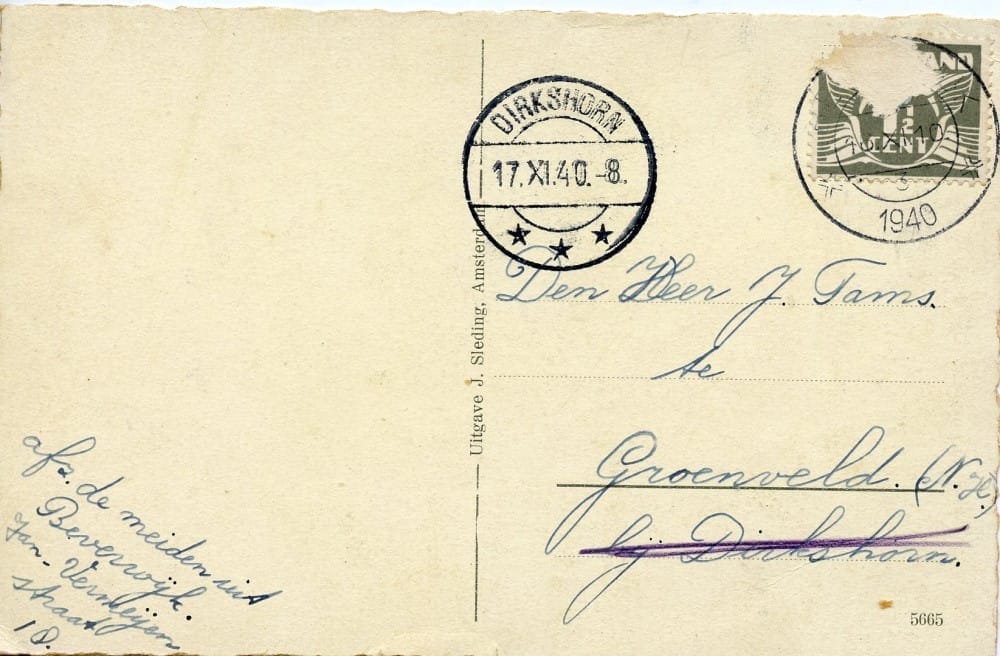 DIRKSHORN
17.XI.40.-8.
AND
CENT
1940
Den Heer J. Tams.
te
Groenveld. (N.H.)
bij Dirkshorn.
Uitgave J. Sleding, Amsterdam
afz. de meiden uit
Beverwijk.
Jan-Vermeijen
straat
10.
5665